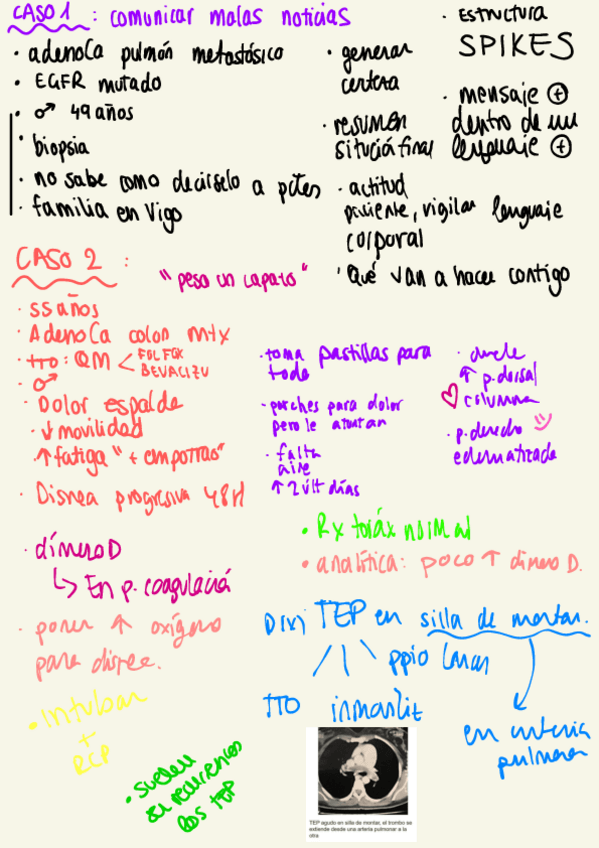 CASO 1 : comunicar malas noticias
• adenoCa pulmón metastásico
• EGFR mutado
• ♂ 49 años
• biopsia
• no sabe como decirselo a pctes
• familia en Vigo
• generar
certeza
• resumen
situción final
• actitud
paciente, vigilar lenguaje
corporal
• Estructura
SPIKES
• mensaje ⊕
dentro de un
lenguaje ⊕
• Qué van a hacer contigo
CASO 2 :
"pesa un zapato"
• 55 años
• AdenoCa colon mtx
• TTO: QM < FOLFOX
BEVACIZU
• ♂
• Dolor espalda
• ↓ movilidad
• ↑ fatiga "+
• Disnea progresiva 48H
• toma pastillas para
todo
• parches para dolor
pero le atontan
• falta
aire
↑ 2 últ días
• duele
↑ p. dorsal
columna
• p. derecho
edematizada
• Rx toráx normal
• analítica: poco ↑ dimero D.
• dímero D
↳ En p. coagulación
• poner ↑ oxígeno
para disnea.
• Intubar
+
RCP
D(x) TEP en silla de montar.
ppio
TTO
en arteria
pulmonar
• suelen
ser recurrentes
los TEP
TEP agudo en silla de montar, el trombo se
extiende desde una arteria pulmonar a la
otra